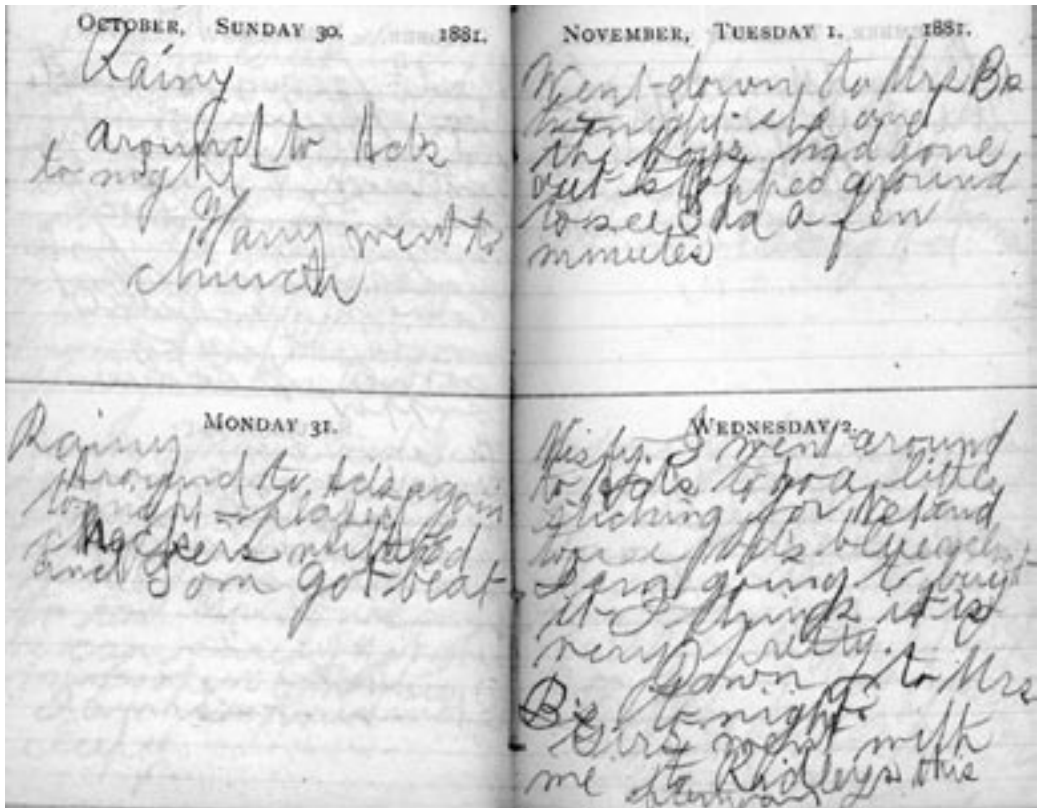 OCTOBER, SUNDAY 30. 1881.
Rainy
around to Ads
tonight
Harry went to
church
MONDAY 31.
Rainy
Around to Ads again
tonight played
checkers with Ed
and Tom got beat
NOVEMBER, TUESDAY 1. 1881.
Went down to Mrs Bs
tonight she and
the boys had gone
out stopped around
to see Ida a few
minutes
WEDNESDAY 2.
Misty. I went around
to Ads to do a little
stitching for Net and
to see
I am going to buy
it I think it is
very pretty.
Down to Mrs
Bs tonight
went with
me to Ridleys this
afternoon